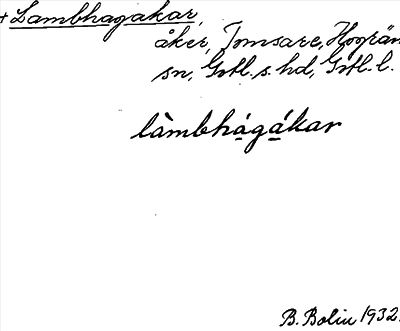 + Lambhagakar,
åker, Tomsare, Hogrän
sn, Gotl. s. hd, Gotl. l.
làmbhágákar
B. Bolin 1932.